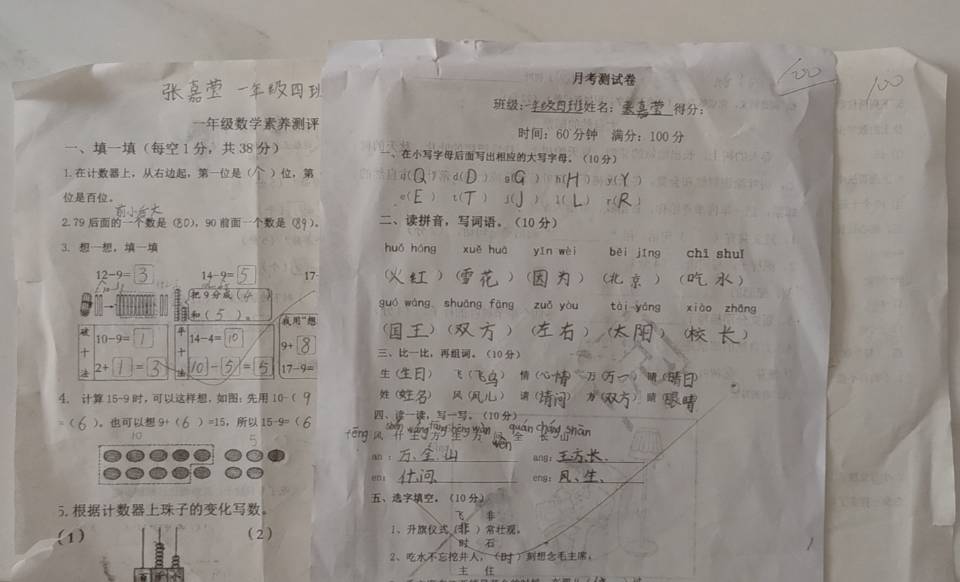 张嘉莹 一年级四班
一年级数学素养测评
一、填一填（每空1分，共38分）
1.在计数器上，从右边起，第一位是（个）位，第
位是百位。
2.79后面的一个数是（80），90前面一个数是（89）。
3. 想一想，填一填
12-9=3 14-9=5 17-
把9分成（4）
和（5）。
我用“想
破十法 10-9=1 平十法 14-4=10 9+8
2+1=3 10-5=5 17-9=
4. 计算15-9时，可以这样想，如图：先用10-（9
=（6）。也可以想9+（6）=15，所以15-9=（6
10 5
5.根据计数器上珠子的变化写数。
（1） （2）
月考测试卷
100
100
班级：一年级四班 姓名：张嘉莹 得分：
时间：60分钟 满分：100分
一、在小写字母后面写出相应的大写字母。（10分）
q（Q） d（D） g（G） h（H） y（Y）
e（E） t（T） j（J） l（L） r（R）
二、读拼音，写词语。（10分）
huǒ hóng xuě huā yīn wèi běi jīng chī shuǐ
（火红）（雪花）（因为）（北京）（吃水）
guó wáng shuāng fāng zuǒ yòu tài yáng xiào zhǎng
（国王）（双方）（左右）（太阳）（校长）
三、比一比，再组词。（10分）
生（生日） 飞（飞鸟） 情（心情） 万（万一） 晴（晴日）
姓（姓名） 风（风儿） 请（请问） 方（双方） 睛（眼睛）
四、读一读，写一写。（10分）
fēng shén wáng fāng shēng wàn wèn quán cháng shān
风 什 王 方 生 万 问 全 长 山
an：万、全、山 ang：王、方、长、
en：什、问、 eng：风、生、
五、选字填空。（10分）
飞 非
1、升旗仪式（非）常壮观。
时 石
2、吃水不忘挖井人，（时）刻想念毛主席。
主 住